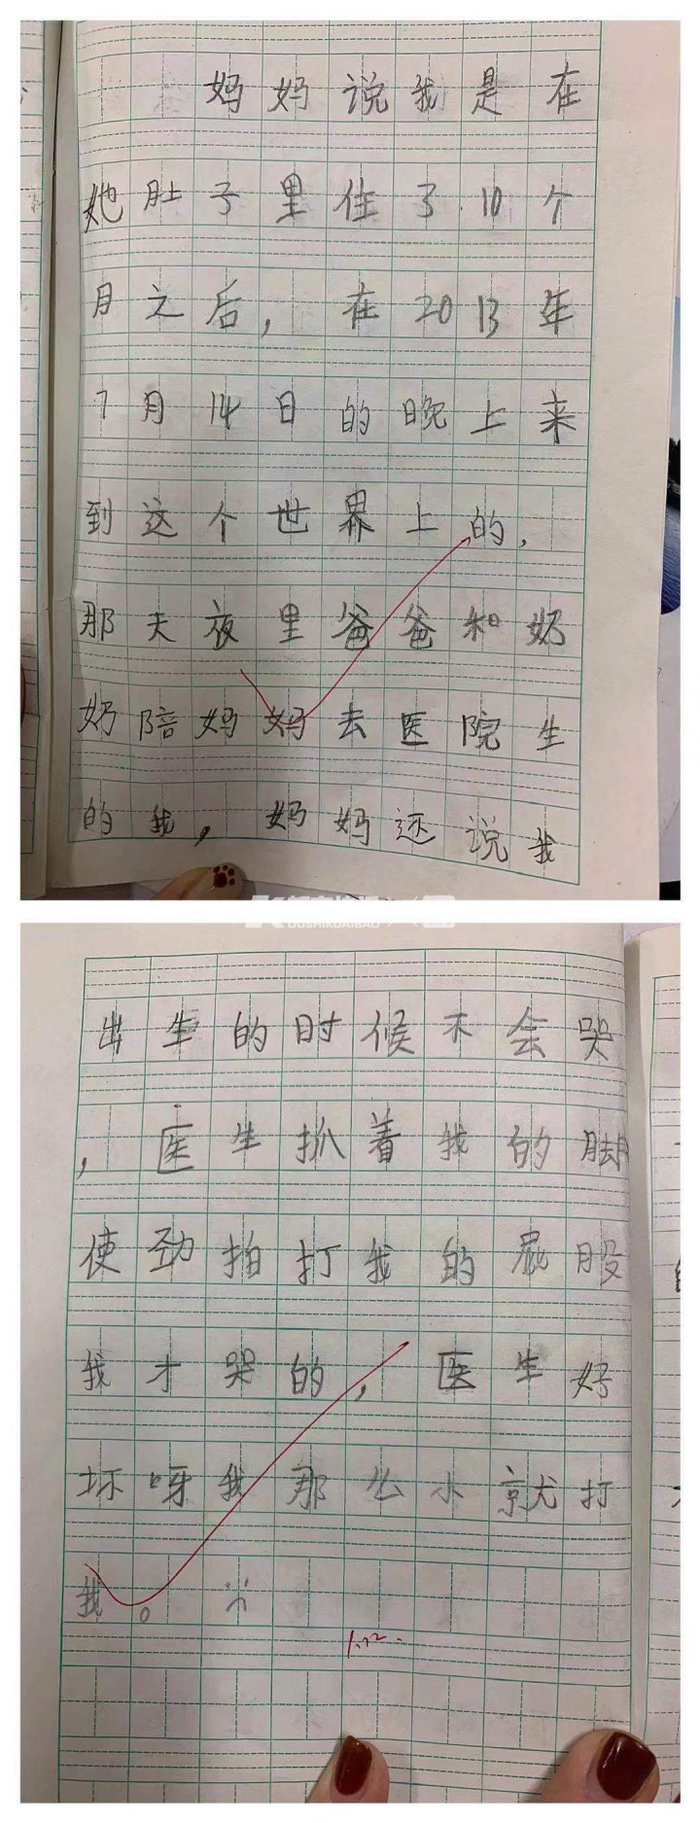 妈妈说我是在
她肚子里住了10个
月之后，在2013年
7月14日的晚上来
到这个世界上的，
那天夜里爸爸和奶
奶陪妈妈去医院生
的我，妈妈还说我
DUSHIKUAIBAO
出生的时候不会哭
，医生抓着我的脚
使劲拍打我的屁股
我才哭的，医生好
坏呀我那么小就打
我。
1.22.